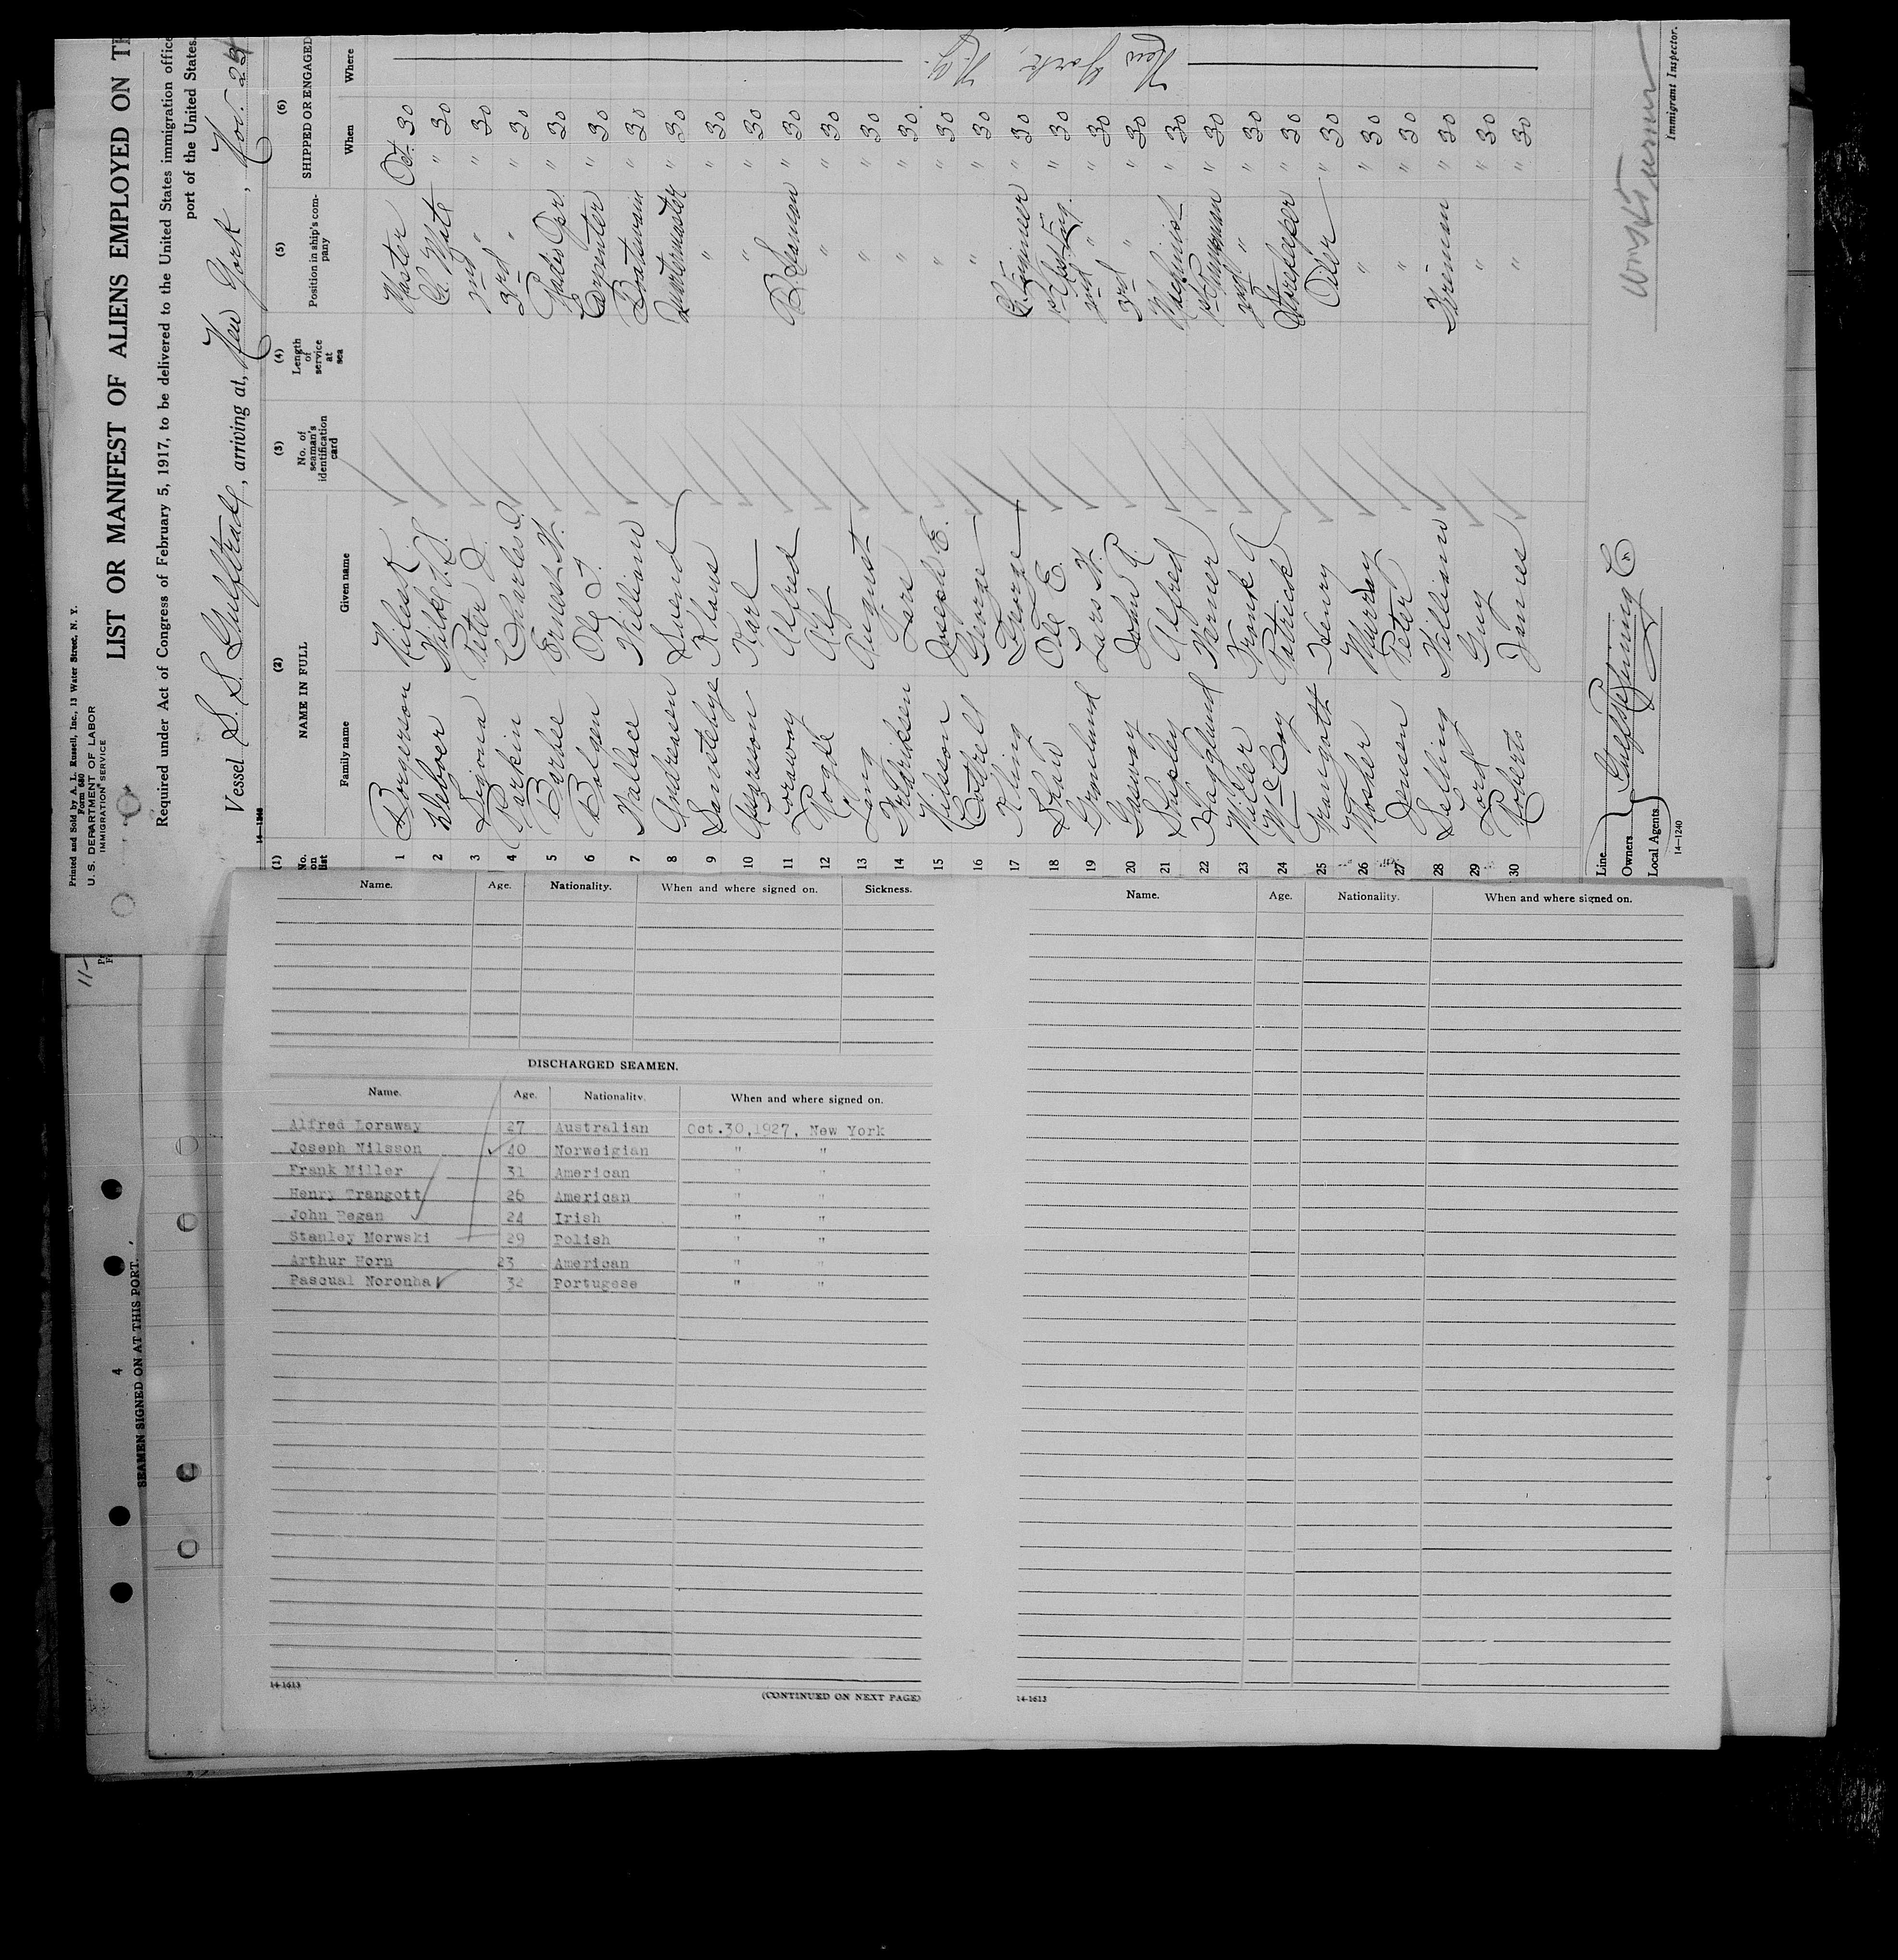 Printed and Sold by A. L. Russell, Inc., 13 Water Street, N. Y.
Form 680
U. S. DEPARTMENT OF LABOR
IMMIGRATION SERVICE
LIST OR MANIFEST OF ALIENS EMPLOYED ON
Required under Act of Congress of February 5, 1917, to be delivered to the United States immigration office
port of the United States.
Vessel S. S. Gulftrade, arriving at, New York, Nov. 23
(1) (2) (3) (4) (5) (6)
No. on list NAME IN FULL No. of seaman's identification card Length of service at sea Position in ship's company SHIPPED OR ENGAGED
Family name Given name When Where
1 Borgerson Niles K. Master Oct. 30
2 Weboer Ch. Mate " 30
3 Peter J. 2nd " " 30
4 Parkin Charles 3rd " " 30
5 Barbee Ernest W. Radio Opr. " 30
6 Bolgen Ole J. Carpenter " 30
7 Wallace William Boatswain " 30
8 Andreasen Svend Quartermaster " 30
9 Klaus " " 30
10 Aaresen Karl " " 30
11 Loraway Alfred A. B. Seaman " 30
12 Alf " " 30
13 Long August " " 30
14 Fredriksen Lars " " 30
15 Nilsson Joseph E. " " 30
16 Cottrell George " " 30
17 Kling George Ch. Engineer " 30
18 Ole E. 1st Asst. Eng. " 30
19 Gronelund Lars W. 2nd " " 30
20 Gasway John R. 3rd " " 30
21 Shipley Alfred Machinist " 30
22 Hagglund Warner 1st Pumpman " 30
23 Miller Frank 2nd " " 30
24 McCoy Patrick Storekeeper " 30
25 Trangott Henry Oiler " 30
26 Mosher Murray " " 30
27 Jensen Peter " " 30
28 Selling William Fireman " 30
29 Ford Guy " " 30
30 Roberts James " " 30
New York, N.Y.
Line
Owners Gulf Refining Co
Local Agents
14—1240
Immigrant Inspector.
4
SEAMEN SIGNED ON AT THIS PORT.
Name. Age. Nationality. When and where signed on. Sickness.
DISCHARGED SEAMEN.
Name. Age. Nationality. When and where signed on.
Alfred Loraway 27 Australian Oct.30,1927, New York
Joseph Nilsson 40 Norweigian " "
Frank Miller 31 American " "
Henry Trangott 26 American " "
John Regan 24 Irish " "
Stanley Morwski 29 Polish " "
Arthur Horn 23 American " "
Pascual Noronha 32 Portugese " "
14-1613
(CONTINUED ON NEXT PAGE)
Name. Age. Nationality. When and where signed on.
14-1613